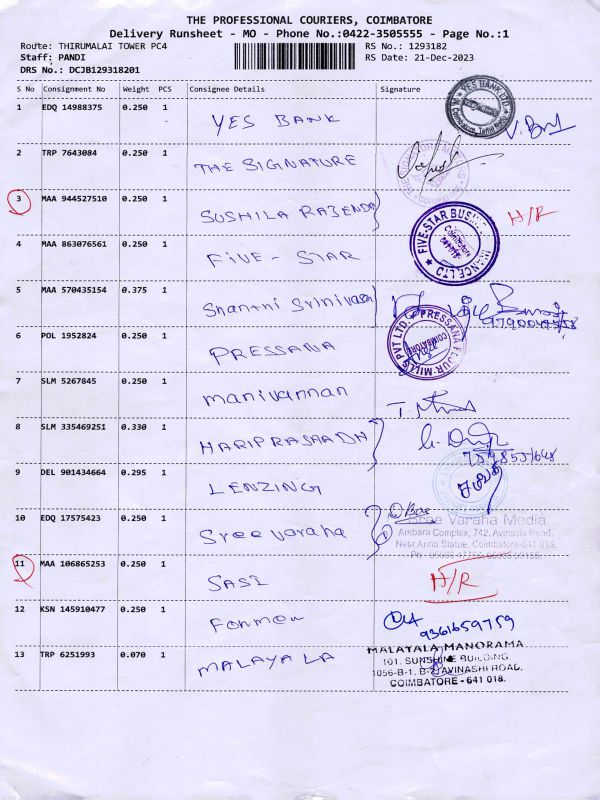 THE PROFESSIONAL COURIERS, COIMBATORE
Delivery Runsheet - MO - Phone No.:0422-3505555 - Page No.:1
Route: THIRUMALAI TOWER PC4 RS No.: 1293182
Staff: PANDI RS Date: 21-Dec-2023
DRS No.: DCJB129318201
S No Consignment No Weight PCS Consignee Details Signature
1 EDQ 14988375 0.250 1 YES BANK YES BANK LTD
2 TRP 7643084 0.250 1 THE SIGNATURE
3 MAA 944527510 0.250 1 SUSHILA RAJENDR H/R
4 MAA 863076561 0.250 1 FIVE - STAR FIVE-STAR BUSINESS FINANCE LTD
5 MAA 570435154 0.375 1 Shanthi Srinivasan
6 POL 1952824 0.250 1 PRESSANA PRESSANA FLOUR MILLS PVT LTD. COIMBATORE
7 SLM 5267845 0.250 1 manivannan
8 SLM 335469251 0.330 1 HARIPRASAADH
9 DEL 901434664 0.295 1 LENZING
10 EDQ 17575423 0.250 1 Sree varaha Sree Varaha Media
Ambara Complex, 742, Avinashi Road,
Near Anna Statue, Coimbatore-641 018.
11 MAA 106865253 0.250 1 SASI H/R
12 KSN 145910477 0.250 1 9361659759
13 TRP 6251993 0.070 1 MALAYALA MALAYALA MANORAMA
101, SUNSHINE BUILDING
1056-B-1, B-2, AVINASHI ROAD,
COIMBATORE - 641 018.